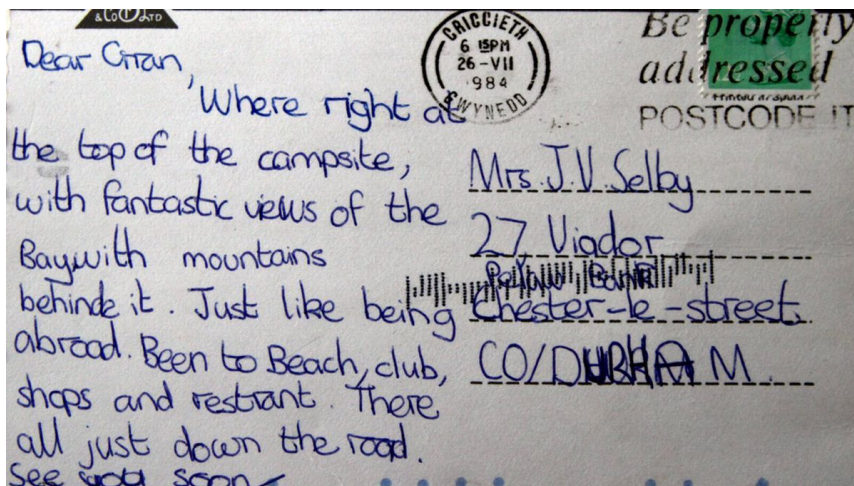 & Co LTD
CRICCIETH
6 15PM
26-VII
984
GWYNEDD
Be properly
addressed
POSTCODE IT
Dear Gran,
Where right at
the top of the campsite,
with fantastic views of the
Baywith mountains
behinde it. Just like being
abroad. Been to Beach, club,
shops and restrant. There
all just down the road.
See you soon
Mrs. J.V. Selby
27 Viador
Pelaw Bank
Chester-le-street.
CO/DURHAM.